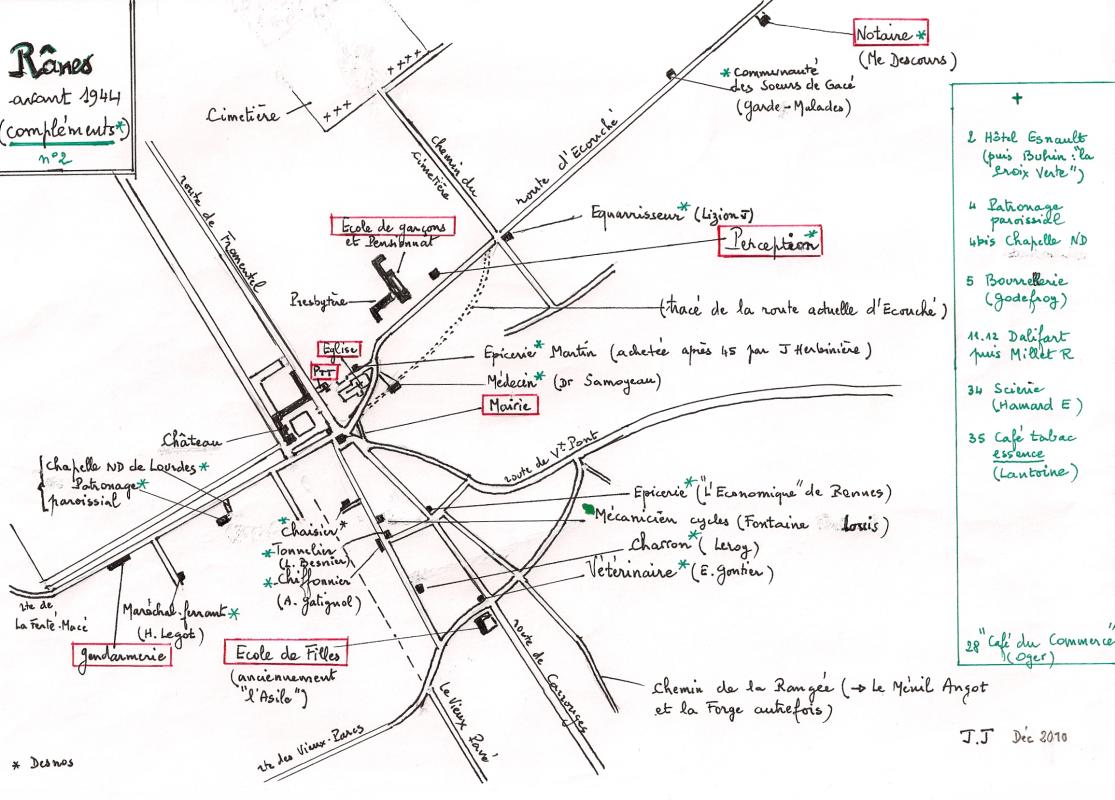 Rânes
avant 1944
(compléments*)
n°2
Cimetière
+ + + +
+ + +
chemin du
cimetière
route d'Ecouché
Notaire *
(Me Descours)
* Communauté
des Soeurs de Gacé
(Garde-Malades)
route de Fromentel
Ecole de garçons
et Pensionnat
Equarrisseur * (Lizion J)
Perception *
Presbytère
(tracé de la route actuelle d'Ecouché)
Eglise
PTT
Epicerie * Martin (achetée après 45 par J Herbinière)
Médecin * (Dr Samoyeau)
Mairie
Château
route de Vx Pont
Chapelle ND de Lourdes *
Patronage *
paroissial
Epicerie * ("L'Economique" de Rennes)
Mécanicien cycles (Fontaine Louis)
* Chaisier *
* Tonnelier
(L. Besnier)
* Chiffonnier
(A. Gatignol)
Charron * (Leroy)
Vétérinaire * (E. Gontier)
rte de
La Ferté-Macé
Maréchal-ferrant *
(H. Legot)
Gendarmerie
Ecole de Filles
(anciennement
"l'Asile")
route de Carrouges
Chemin de la Rangée (→ Le Ménil Angot
et la Forge autrefois)
Le Vieux Pavé
rte des Vieux-Parcs
* Desnos
J.J Déc 2010
+
2 Hôtel Esnault
(puis Buhin : "la
Croix Verte")
4 Patronage
paroissial
4bis Chapelle ND
5 Bourrellerie
(Godefroy)
11.12 Dalifart
puis Millet R
34 Scierie
(Hamard E)
35 Café tabac
essence
(Lantoine)
28 "Café du Commerce"
(Oger)